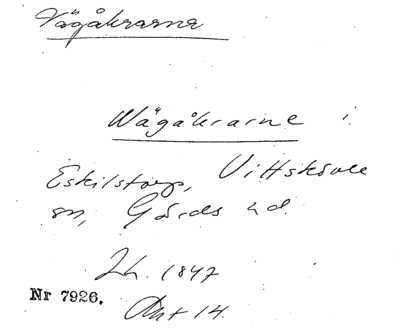 Vägåkrarna
Wägåkrarne i
Eskilstorp, Vittskövle
sn, Gärds hd.
Lh. 1847
Nr 7926.
Akt 14.